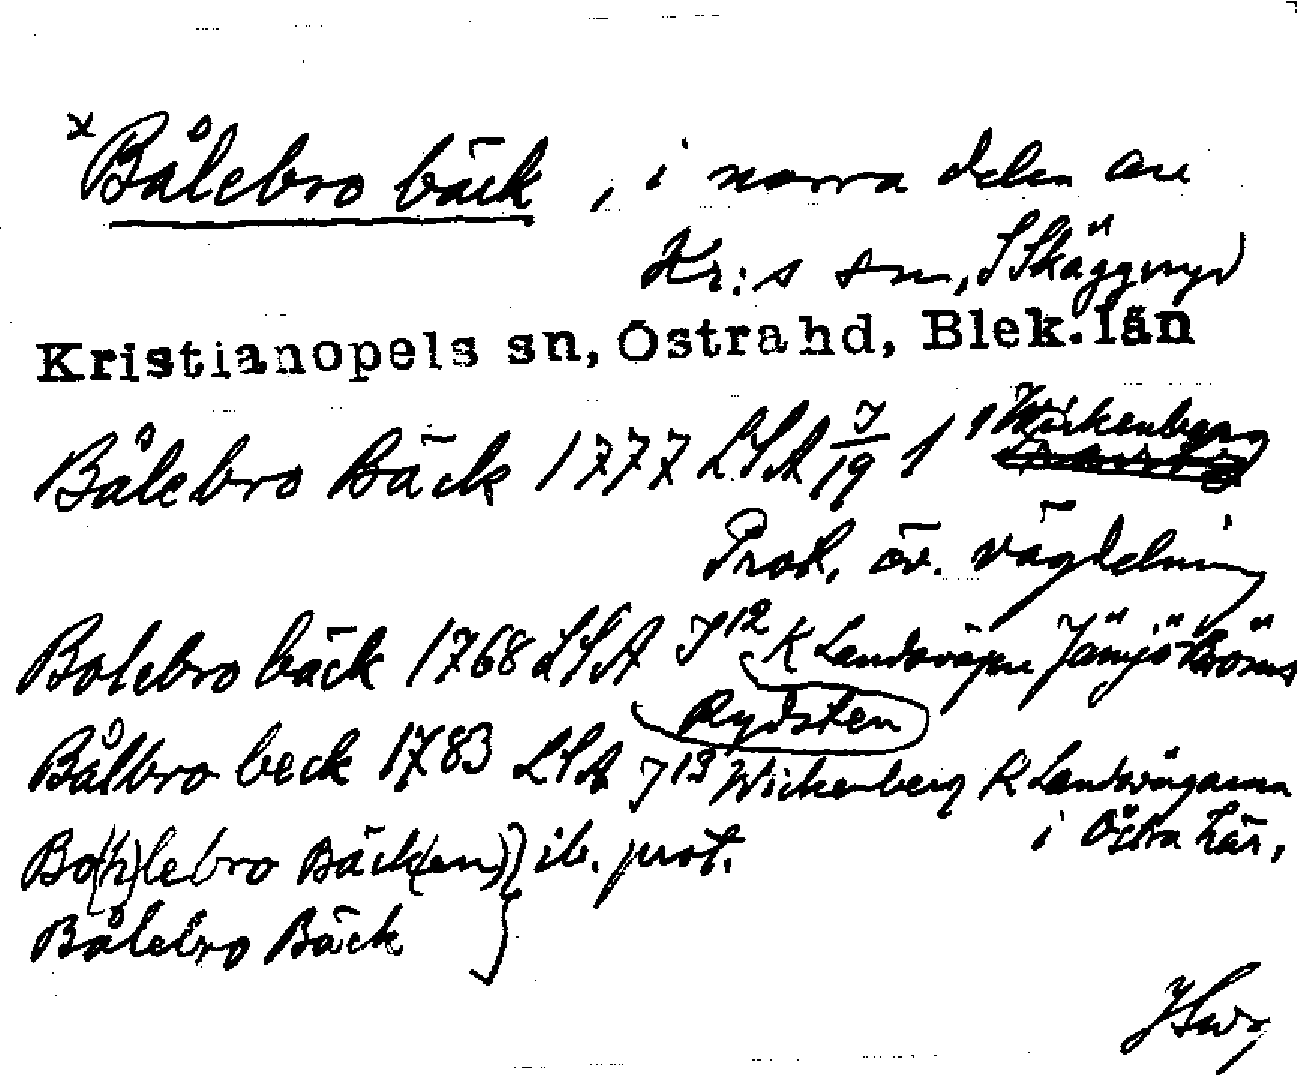 ×Bålebro bäck, i norra delen av
Kr:s sn, S Skäggnyd
Kristianopels sn, Östra hd, Blek. län
Bålebro Bäck 1777 LSA J/19 1 Wickenberg
Prot. öv. vägdelning
Bolebro bäck 1768 LSA J12 K Landsvägen Jämjö Brömse
Rydsten
Bålbro beck 1783 LSA J13 Wickenberg K Landsvägarna
i Östra här.
Bo(h)lebro Bäck(en) ib. prot.
Bålebro Bäck